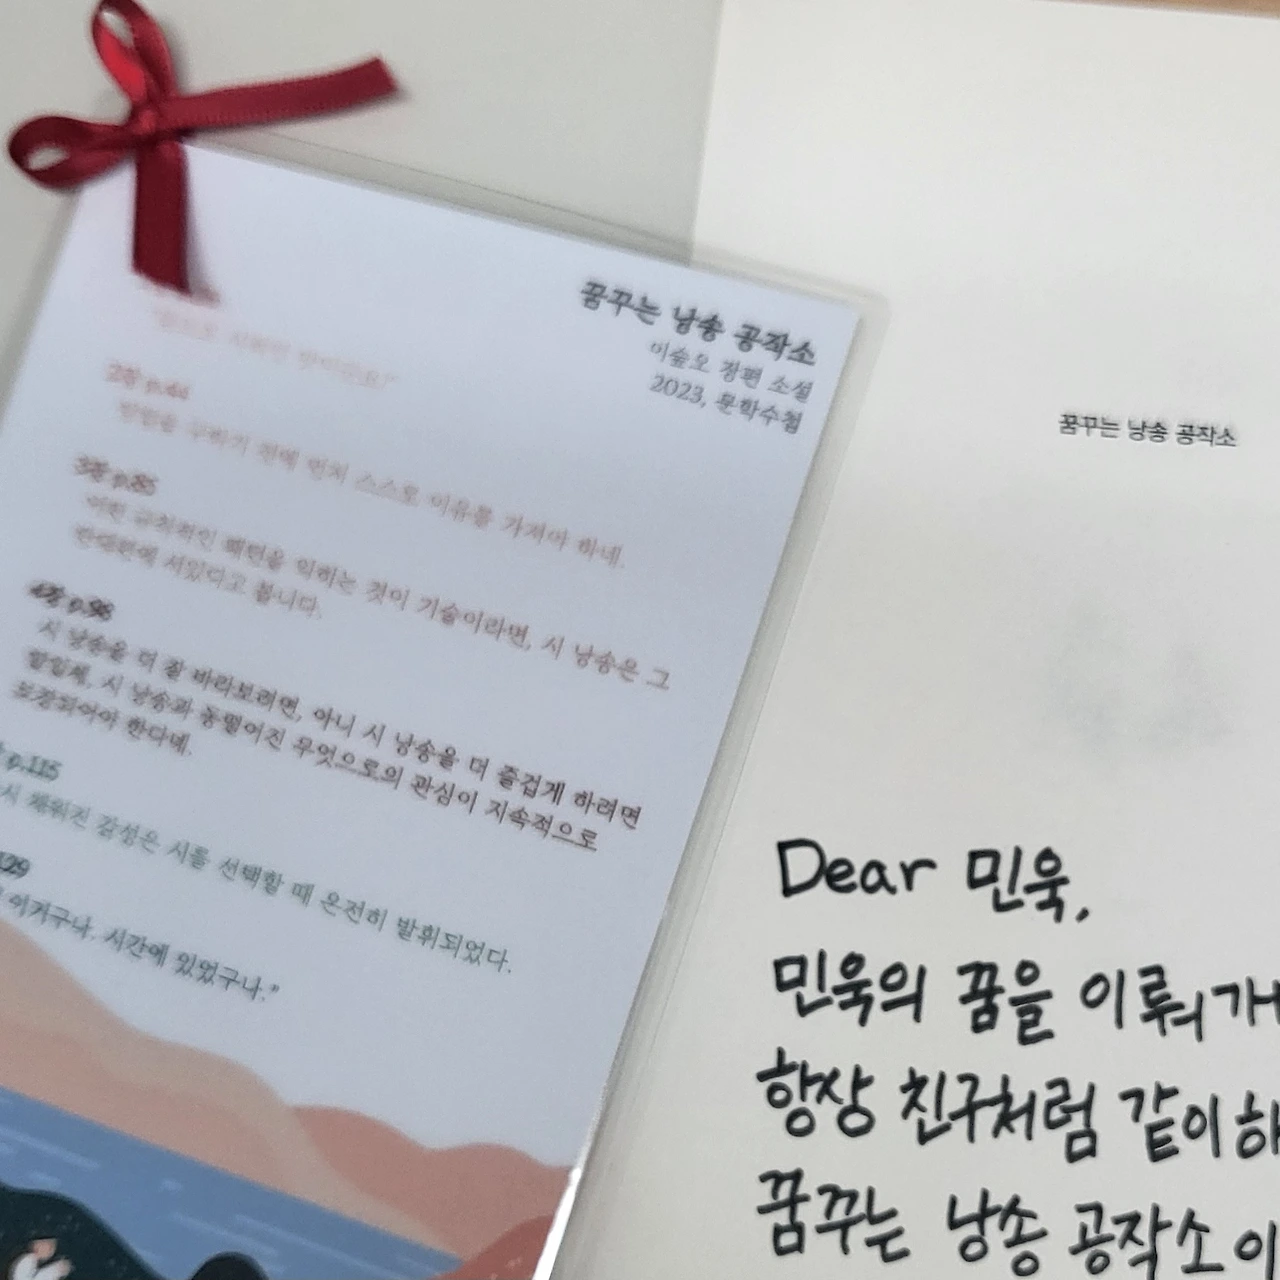 꿈꾸는 낭송 공작소
이숲오 장편 소설
2023, 문학수첩
2장 p.44
방법을 구하기 전에 먼저 스스로 이유를 가져야 하네.
3장 p.85
어떤 규칙적인 패턴을 익히는 것이 기술이라면, 시 낭송은 그
반대편에 서있다고 봅니다.
4장 p.98
시 낭송을 더 잘 바라보려면, 아니 시 낭송을 더 즐겁게 하려면
말일세, 시 낭송과 동떨어진 무엇으로의 관심이 지속적으로
보장되어야 한다네.
p.115
시 채워진 감성은 시를 선택할 때 온전히 발휘되었다.
129
이거구나. 시간에 있었구나."
꿈꾸는 낭송 공작소
Dear 민욱,
민욱의 꿈을 이뤄가
항상 친구처럼 같이
꿈꾸는 낭송 공작소